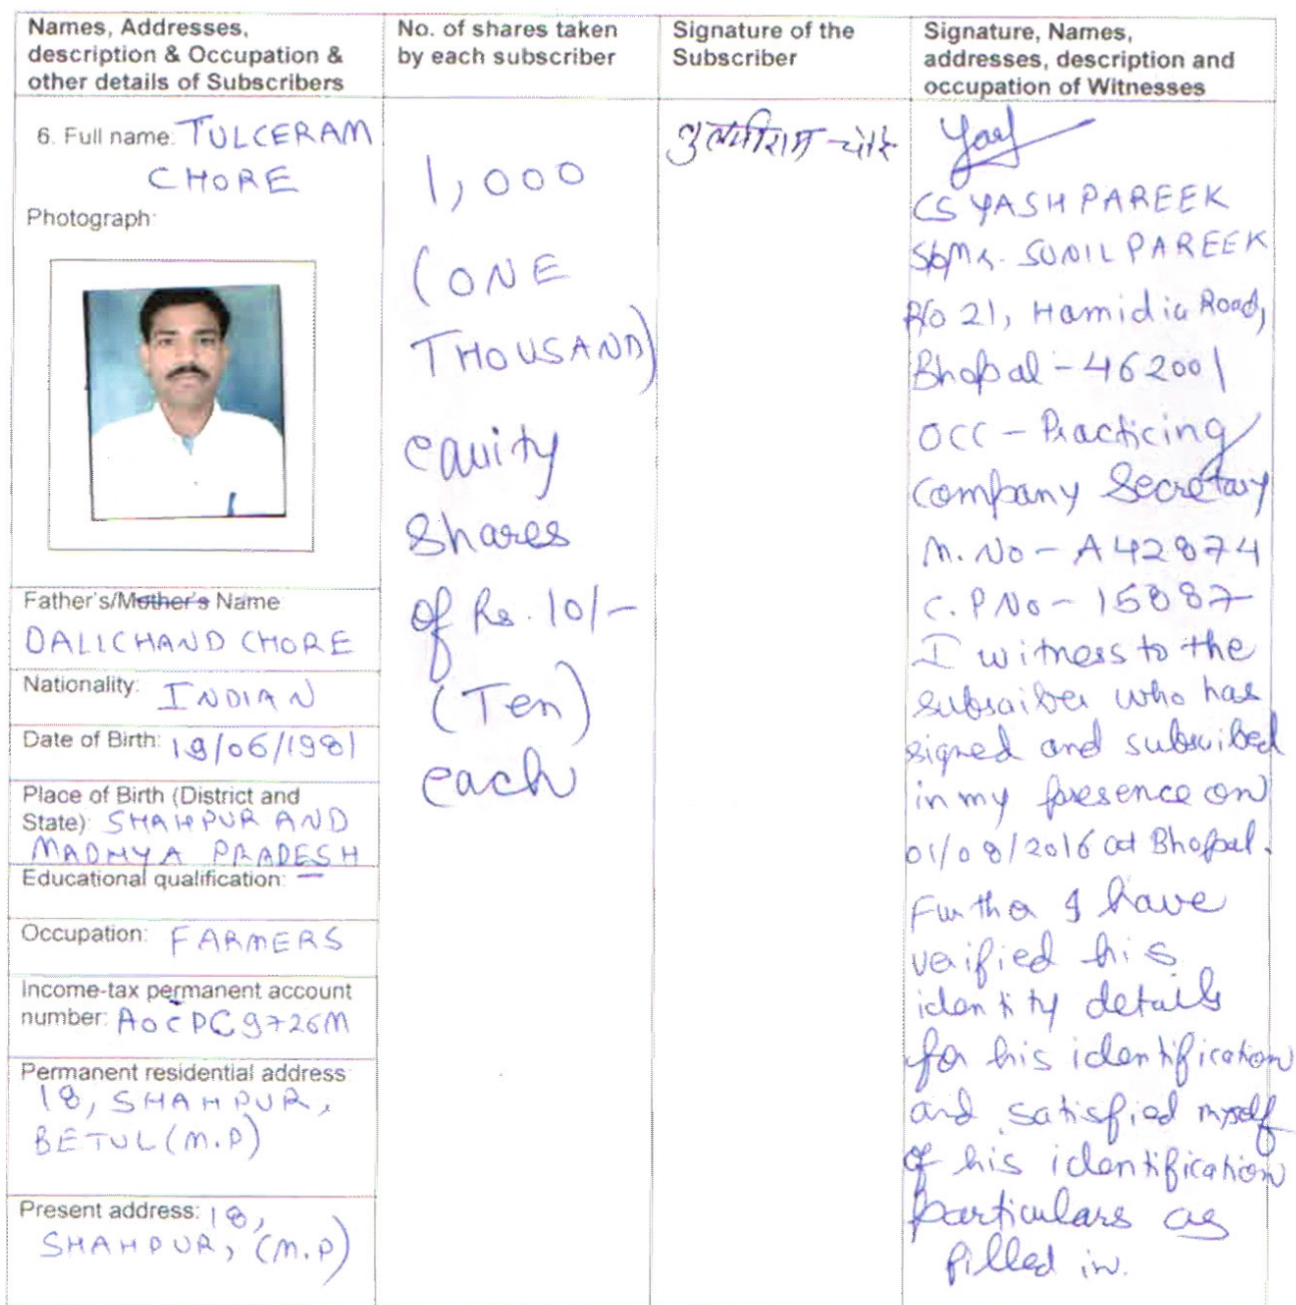 Names, Addresses,
description & Occupation &
other details of Subscribers
No. of shares taken
by each subscriber
Signature of the
Subscriber
Signature, Names,
addresses, description and
occupation of Witnesses
6. Full name: TULCERAM
CHORE
Photograph:
Father's/Mother's Name
DALICHAND CHORE
Nationality: INDIAN
Date of Birth: 19/06/1981
Place of Birth (District and
State): SHAHPUR AND
MADHYA PRADESH
Educational qualification: —
Occupation: FARMERS
Income-tax permanent account
number: AOCPC9726M
Permanent residential address
18, SHAHPUR,
BETUL (M.P)
Present address: 18,
SHAHPUR, (M.P)
1,000
(ONE
THOUSAND)
equity
shares
of Rs. 10/-
(Ten)
each
तुलसीराम चोरे
CS YASH PAREEK
S/o Mr. SUNIL PAREEK
R/o 21, Hamidia Road,
Bhopal - 462001
OCC - Practicing
Company Secretary
M. No - A42874
C. P No - 15887
I witness to the
subscriber who has
signed and subscribed
in my presence on
01/08/2016 at Bhopal.
Further I have
verified his
identity details
for his identification
and satisfied myself
of his identification
particulars as
filled in.